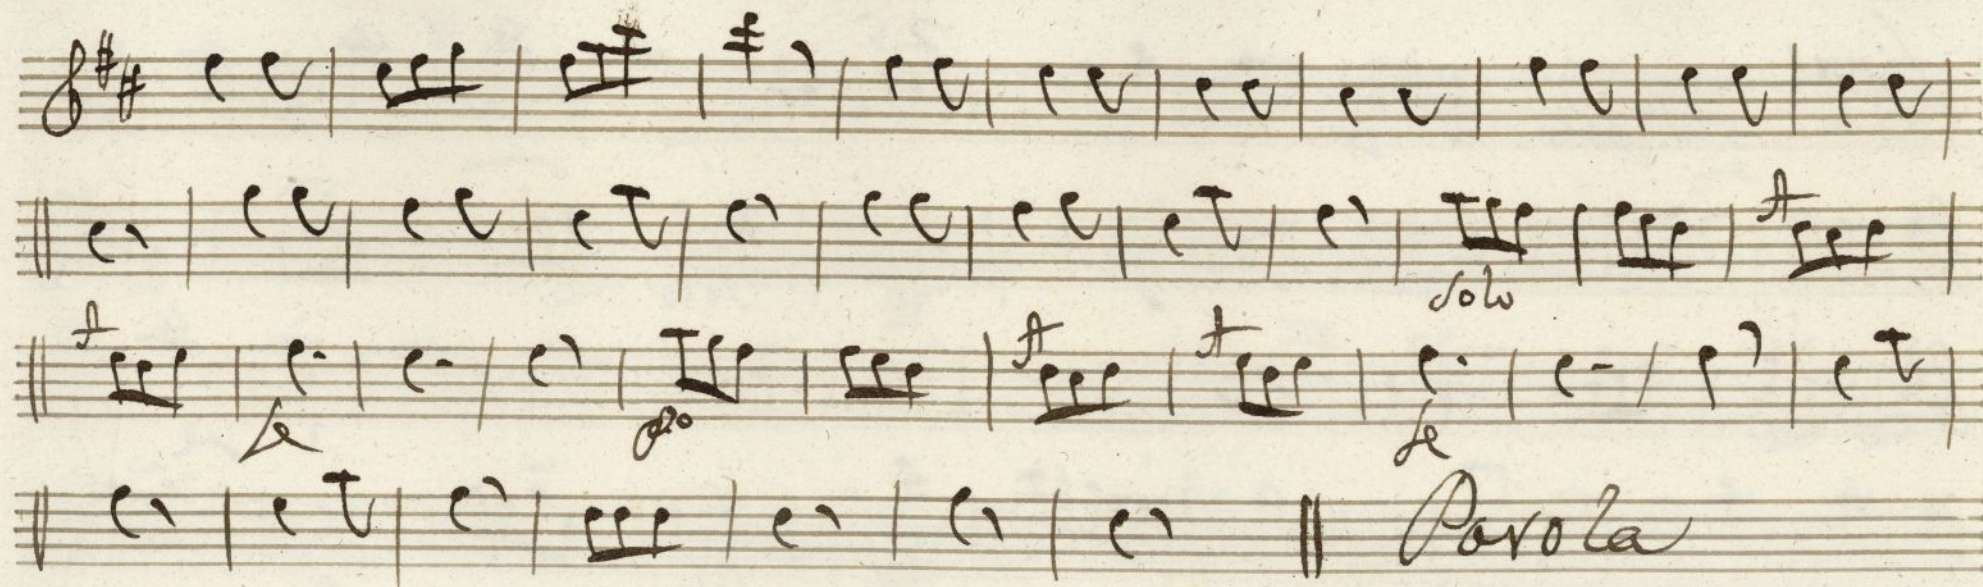 Solo
fe
po
fe
Parola